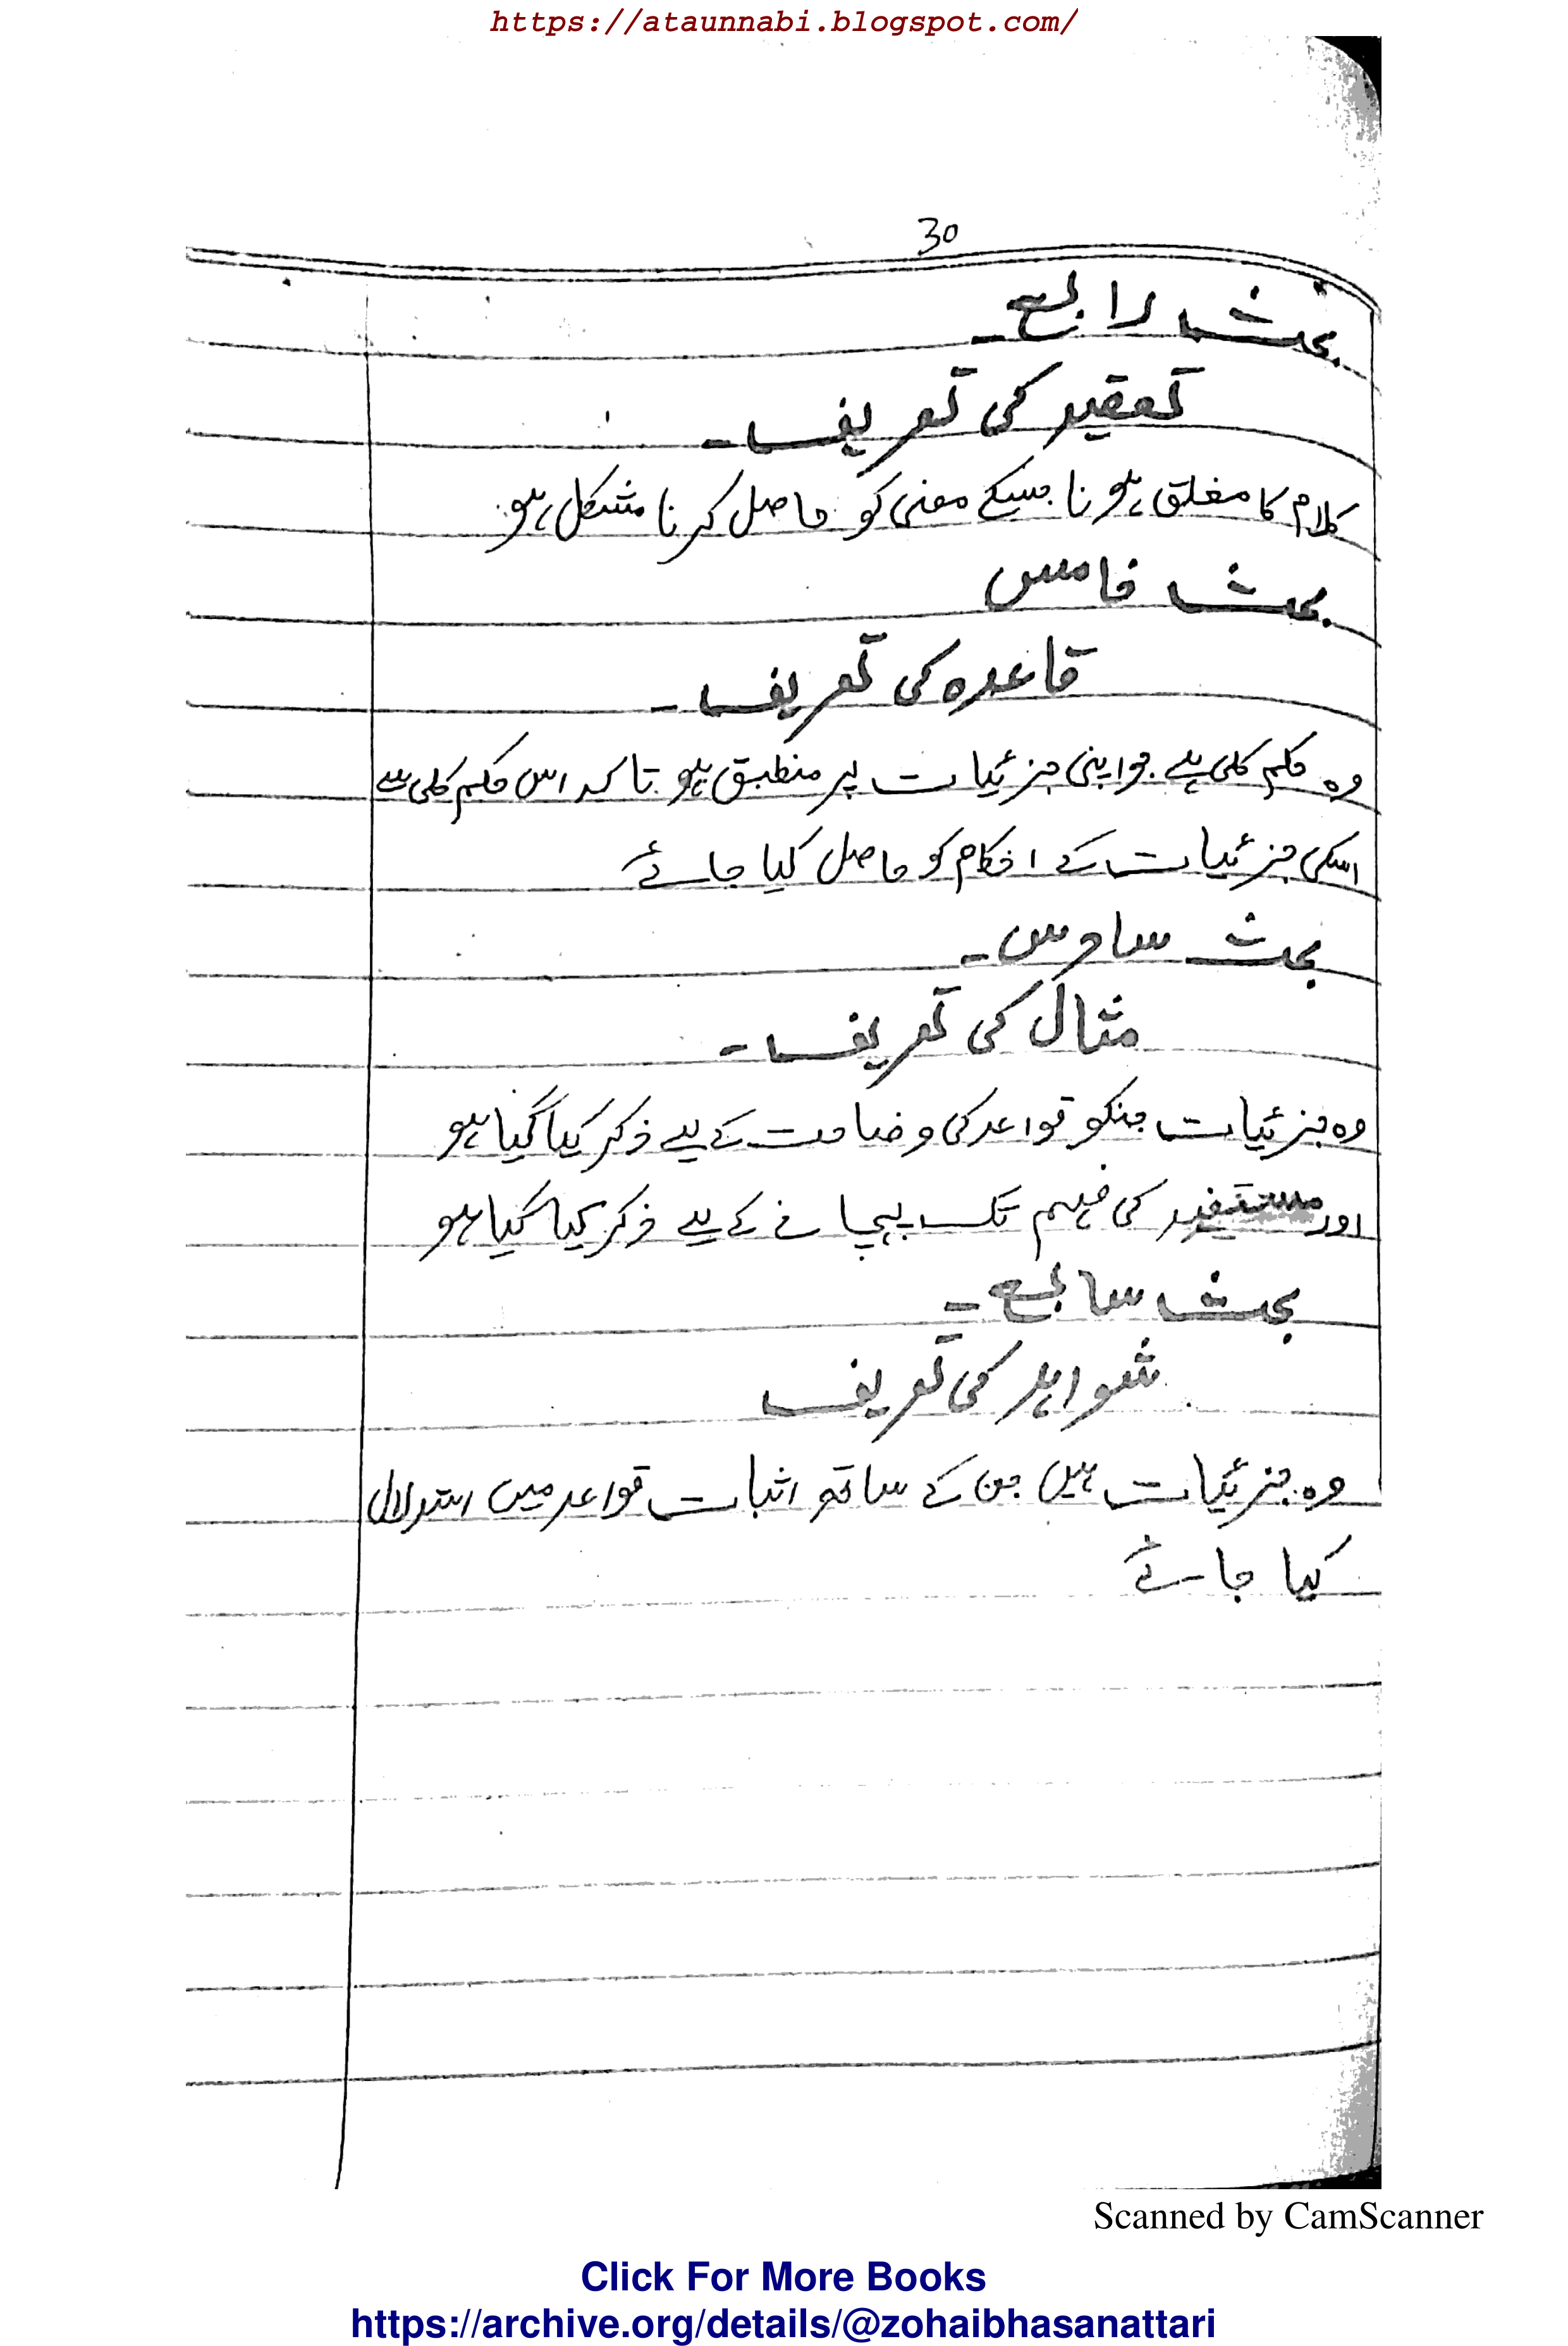 https://ataunnabi.blogspot.com/
30
بحث رابع۔
تعقید کی تعریف۔
کلام کا مغلق ہونا جسکے معنی کو حاصل کرنا مشکل ہو۔
بحث خامس
قاعدہ کی تعریف۔
وہ حکم کلی ہے جو اپنی جزئیات پر منطبق ہو تاکہ اس حکم کلی سے
اسکی جزئیات کے احکام کو حاصل کیا جائے
بحث سادس۔
مثال کی تعریف۔
وہ جزئیات جنکو قواعد کی وضاحت کے لیے ذکر کیا گیا ہو
اور مستفید کی فہم تک پہچانے کے لیے ذکر کیا گیا ہو
بحث سابع۔
شواہد کی تعریف
وہ جزئیات ہیں جن کے ساتھ اثبات قواعد میں استدلال
کیا جائے
Scanned by CamScanner
Click For More Books
https://archive.org/details/@zohaibhasanattari